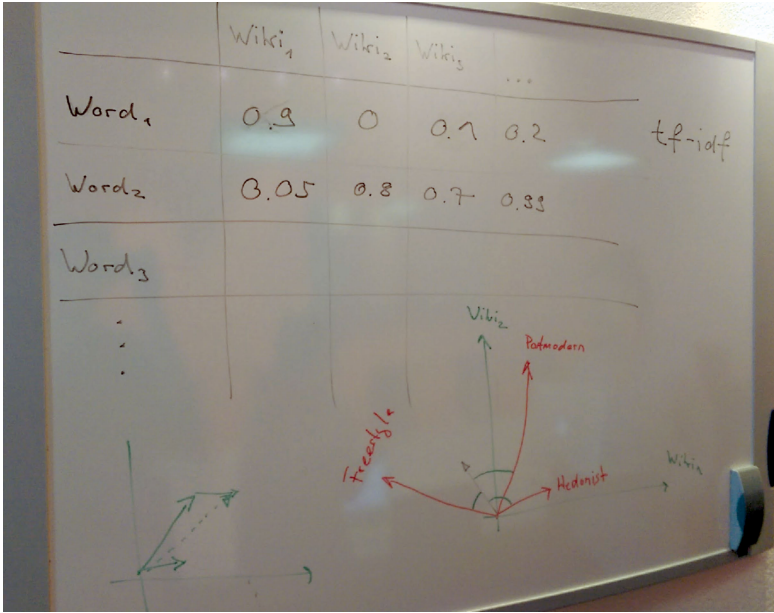 Wiki₁ Wiki₂ Wiki₃ ...
Word₁ 0.9 0 0.1 0.2
tf-idf
Word₂ 0.05 0.8 0.7 0.99
Word₃
Wiki₂
Postmodern
Freestyle
Hedonist
Wiki₁